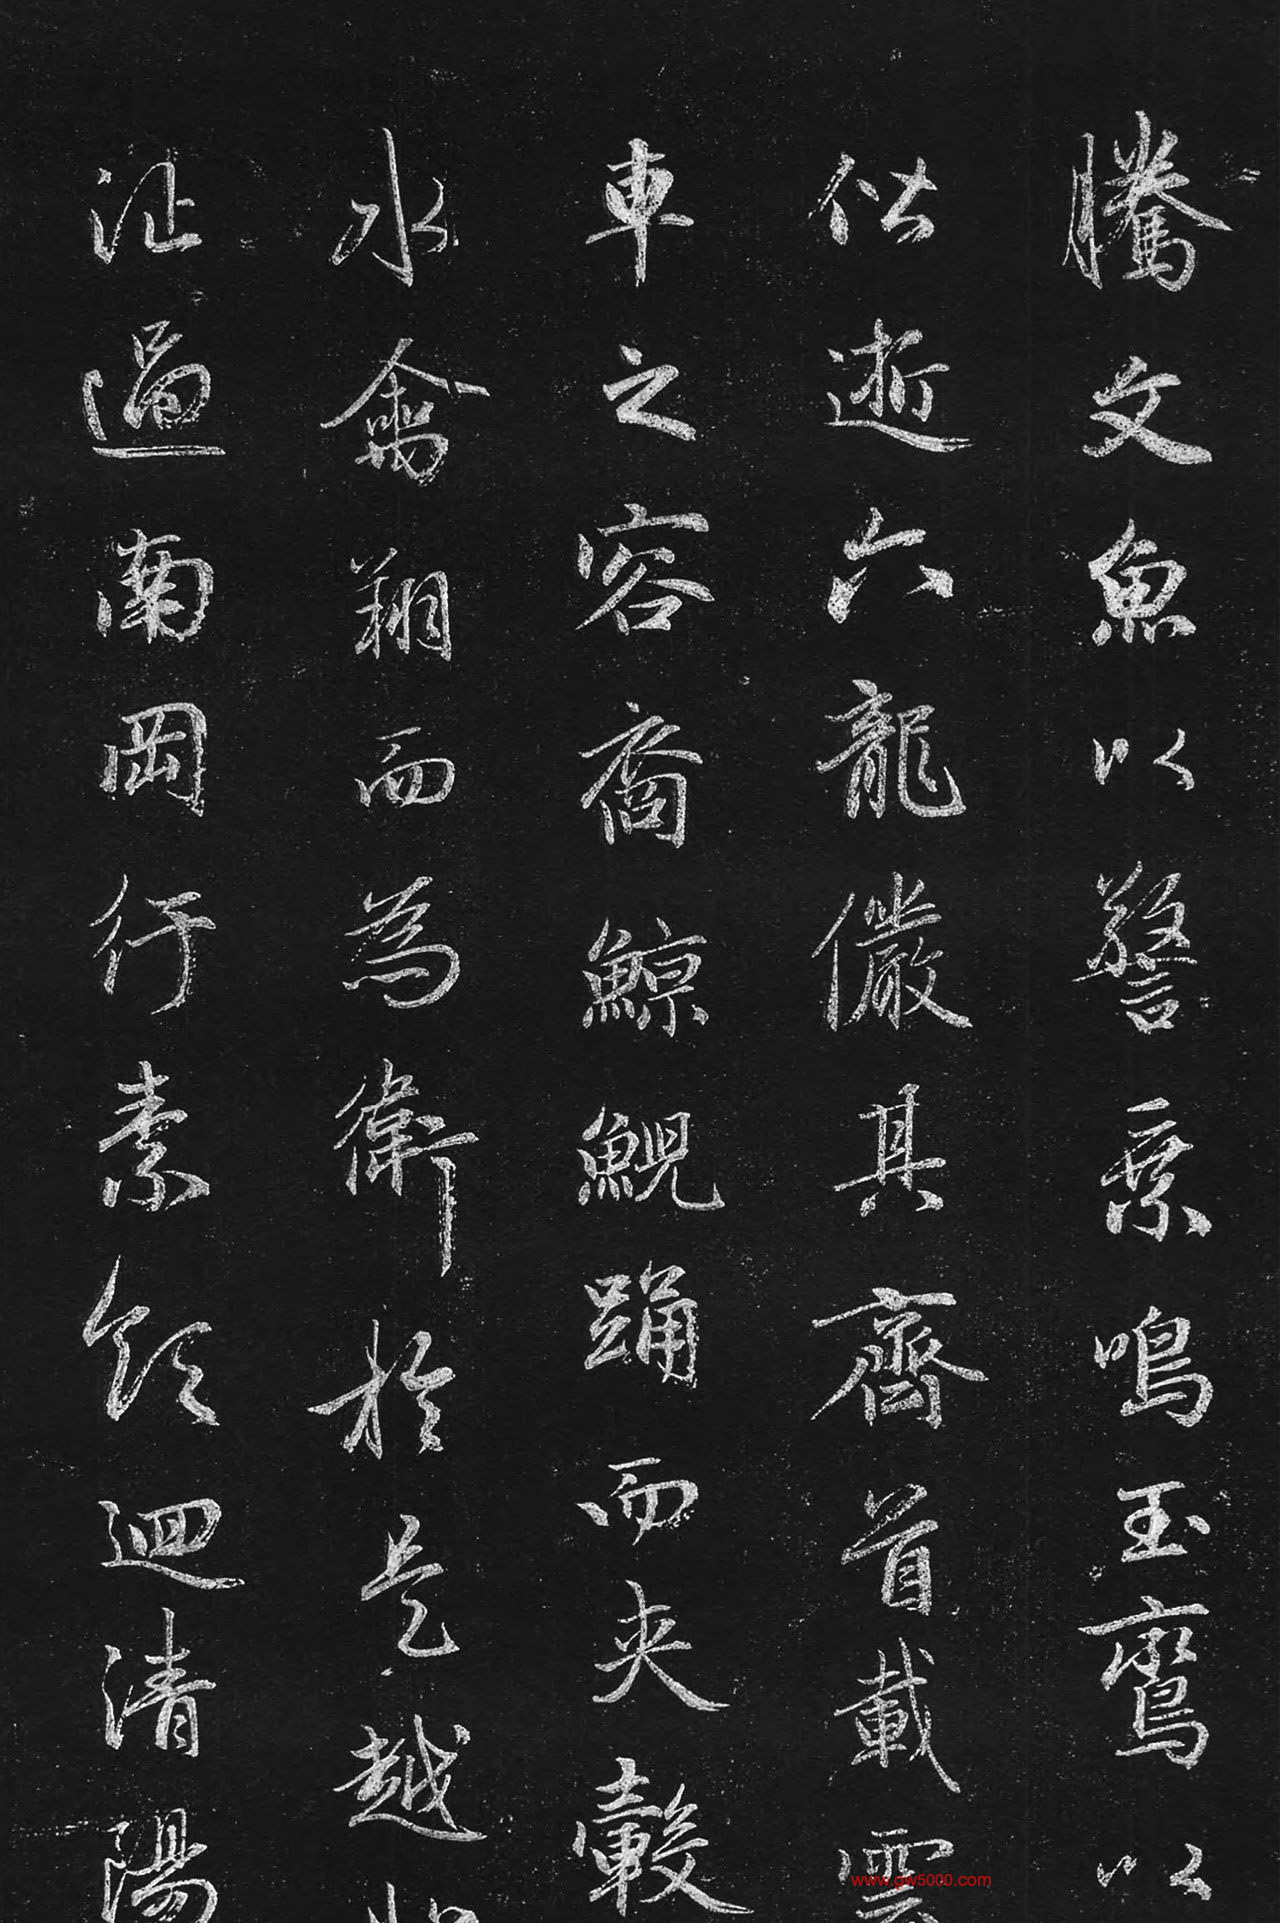 騰文魚以警乗鳴玉鸞以
偕逝六龍儼其齊首載雲
車之容裔鯨鯢踊而夾轂
水禽翔而為衛於是越北
沚過南岡紆素領迴清陽
www.gw5000.com